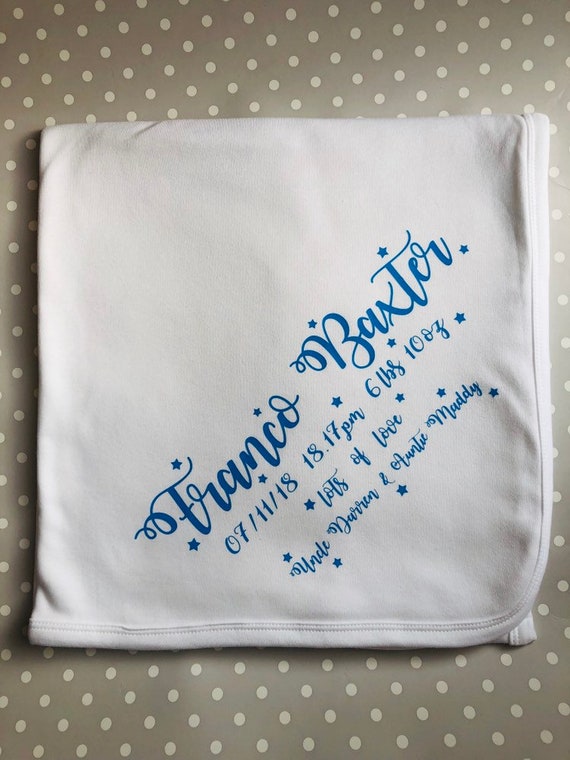 Franco Baxter
07/11/18 18.17pm 6lbs 10oz
lots of love
Uncle Darren & Auntie Maddy